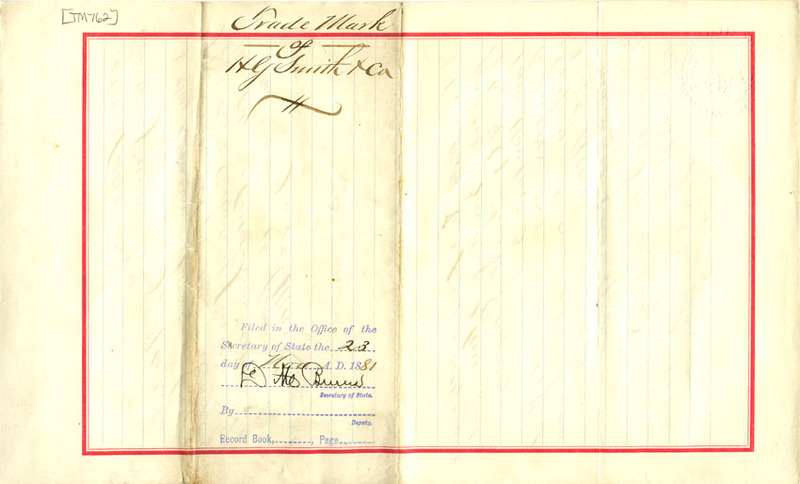 [TM762]
Trade Mark
of
H G Smith & Co
Filed in the Office of the
Secretary of State the 23
day of A. D. 1881
Secretary of State.
By
Deputy.
Record Book, , Page